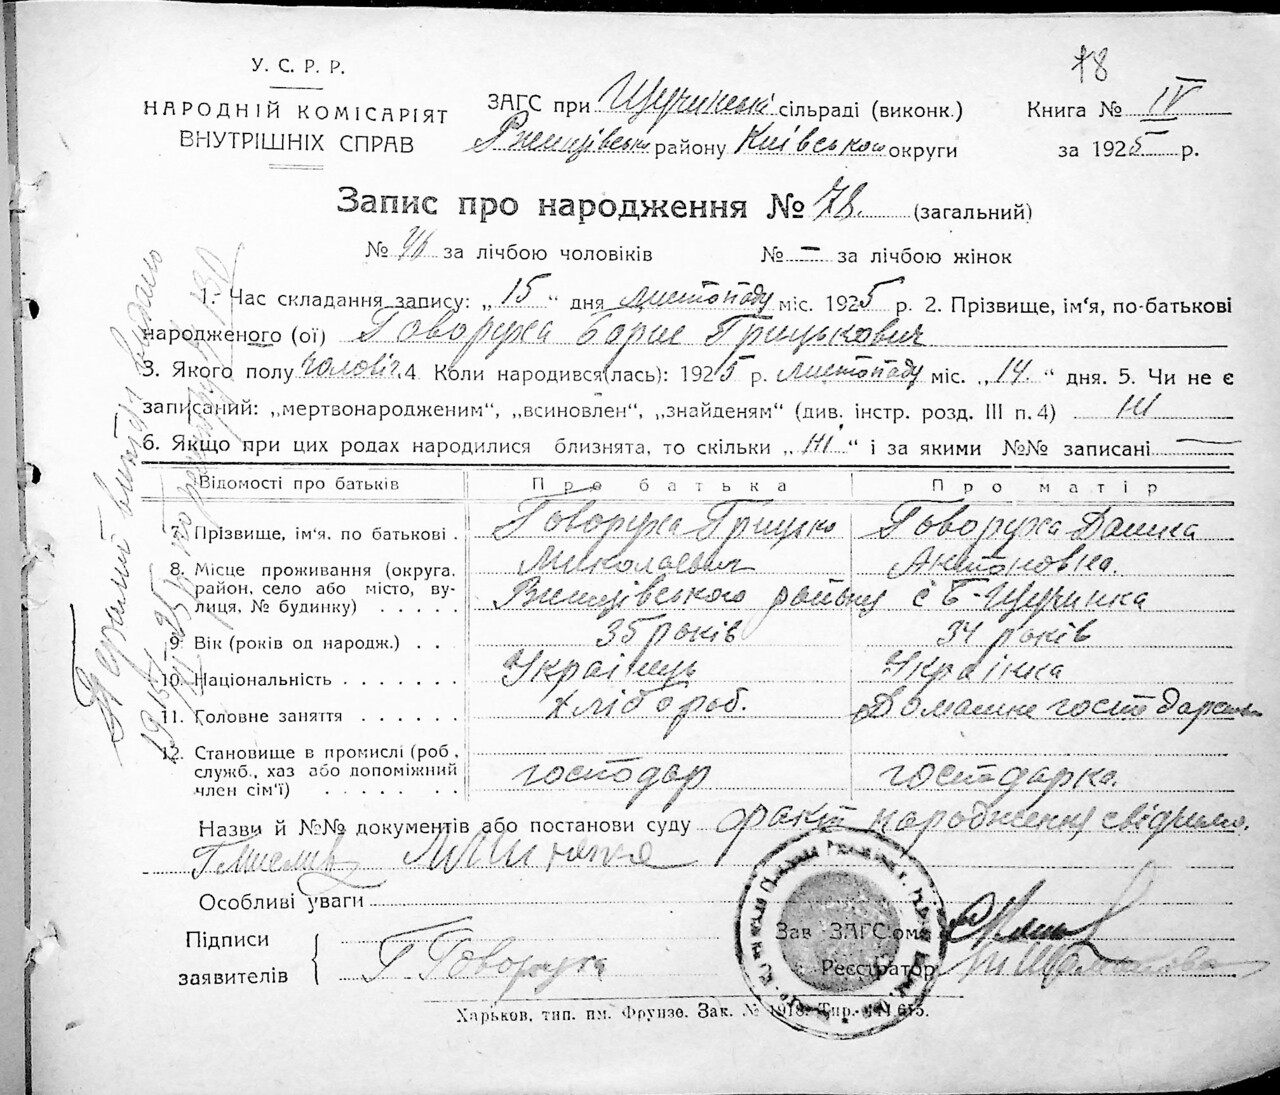 78
У. С. Р. Р.
НАРОДНІЙ КОМІСАРІЯТ
ВНУТРІШНІХ СПРАВ
ЗАГС при Щучинські сільраді (виконк.)
Ржищівськ району Київського округи
Книга № IV
за 1925 р.
Запис про народження № 78. (загальний)
№ за лічбою чоловіків № — за лічбою жінок
1. Час складання запису: „ 15 “ дня листопаду міс. 1925 р. 2. Прізвище, ім‘я, по-батькові
народженого (ої) Говоруха Борис Грицькович
3. Якого полу чоловіч. 4 Коли народився(лась): 1925 р. листопаду міс. „ 14. “ дня. 5. Чи не є
записаний: „мертвонародженим“, „всиновлен“, „знайденям“ (див. інстр. розд. III п. 4) Ні
6. Якщо при цих родах народилися близнята, то скільки „ Ні “ і за якими №№ записані —
Відомості про батьків Про батька Про матір
7. Прізвище, ім‘я. по батькові . Говоруха Грицько Говоруха Домка
Миколаевич Антоновна.
8. Місце проживання (округа.
район, село або місто, ву-
лиця, № будинку) . . . . . Ржищівського району с Б-Щучинка
9. Вік (років од народж.) . . 35 років 34 років
10. Національність . . . . . . . Украінець Украінка
11. Головне заняття . . . . . . Хлібороб. Домашне господарство
12. Становище в промислі (роб.
служб., хаз або допоміжний
член сім‘ї) . . . . . . . господар господарка.
Назви й №№ документів або постанови суду факт народження свідчимо.
Особливі уваги
Підписи
заявителів
Г Говоруха
Зав ЗАГС‘ом
Реєстратор
Харьков, тип. им. Фрунзе. Зак. № 1918. Тир.
Перший витяг видано